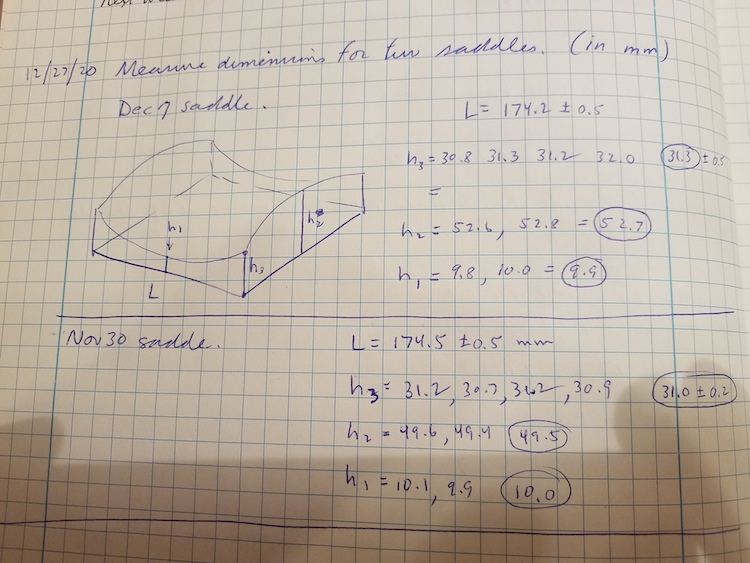 12/27/20 Measure dimensions for two saddles. (in mm)
Dec 7 saddle.
L = 174.2 ± 0.5
h3 = 30.8 31.3 31.2 32.0 31.3 ± 0.5
=
h2 = 52.6, 52.8 = 52.7
h1 = 9.8, 10.0 = 9.9
h1
h2
h3
L
Nov 30 saddle.
L = 174.5 ± 0.5 mm
h3 = 31.2, 30.7, 31.2, 30.9 31.0 ± 0.2
h2 = 49.6, 49.4 49.5
h1 = 10.1, 9.9 10.0